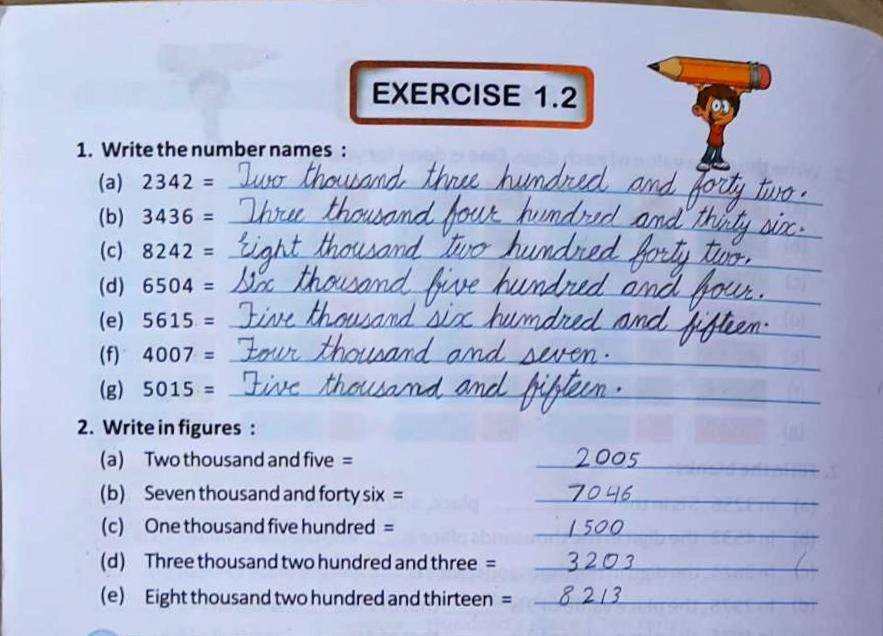 EXERCISE 1.2
1. Write the number names :
(a) 2342 = Two thousand three hundred and forty two.
(b) 3436 = Three thousand four hundred and thirty six.
(c) 8242 = Eight thousand two hundred forty two.
(d) 6504 = Six thousand five hundred and four.
(e) 5615 = Five thousand six humdred and fifteen.
(f) 4007 = Four thousand and seven.
(g) 5015 = Five thousand and fifteen.
2. Write in figures :
(a) Two thousand and five = 2005
(b) Seven thousand and forty six = 7046
(c) One thousand five hundred = 1500
(d) Three thousand two hundred and three = 3203
(e) Eight thousand two hundred and thirteen = 8213